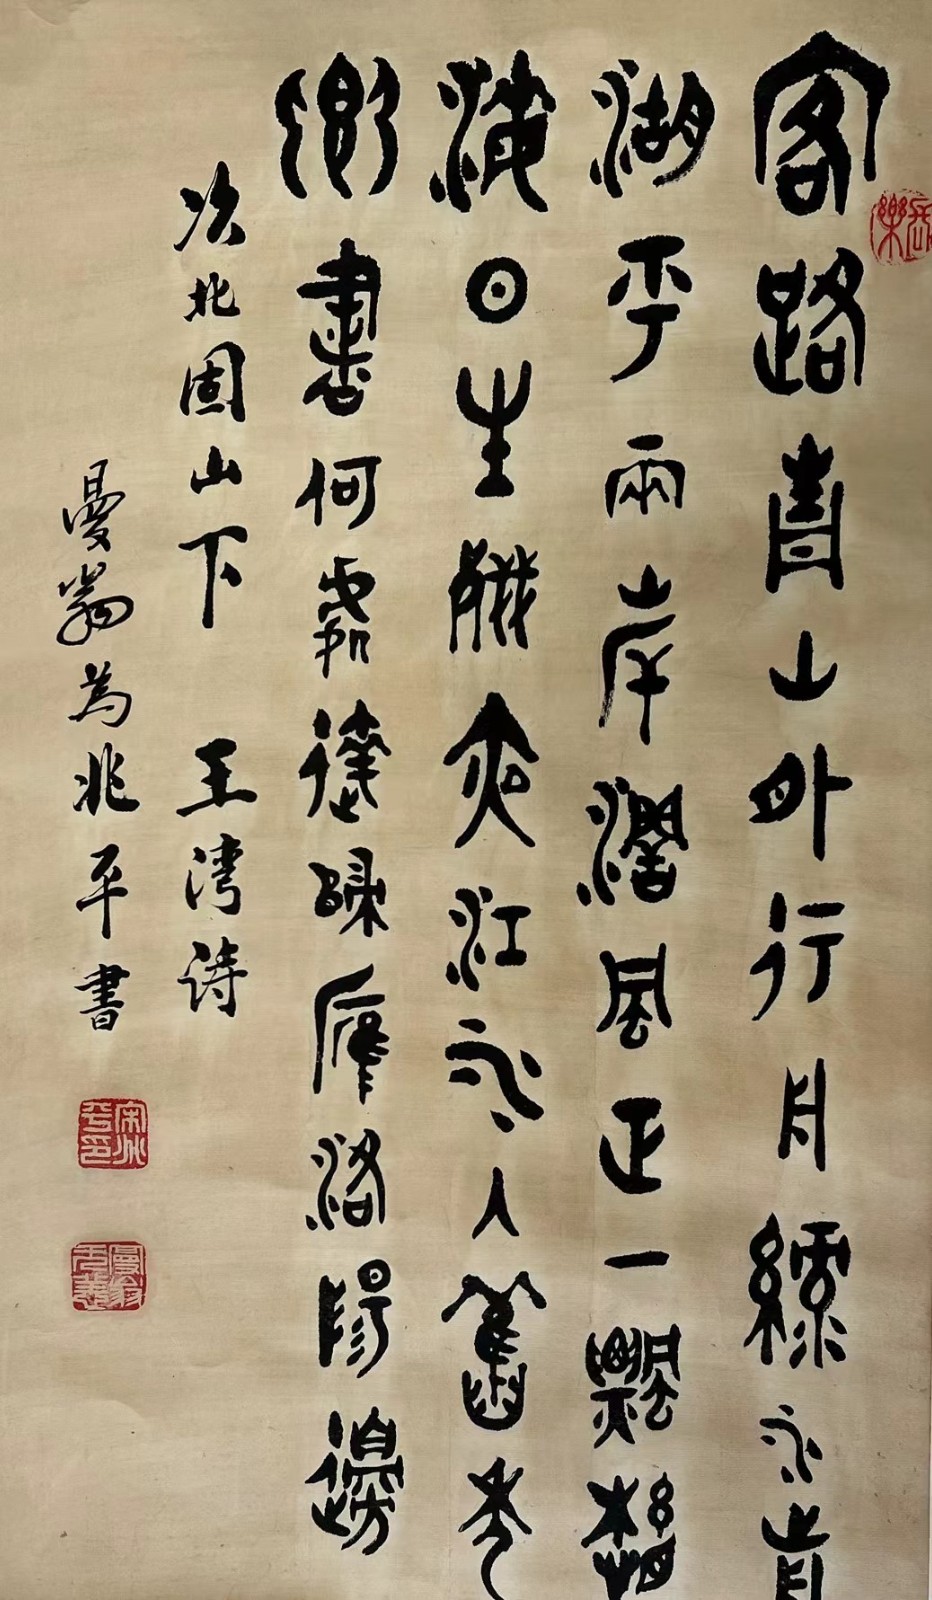 客路青山外行舟綠水前
潮平兩岸濶風正一颿懸
海日生殘夜江水入舊年
鄉書何處達歸雁洛陽邊
次北固山下 王湾诗
曼翁為兆平書